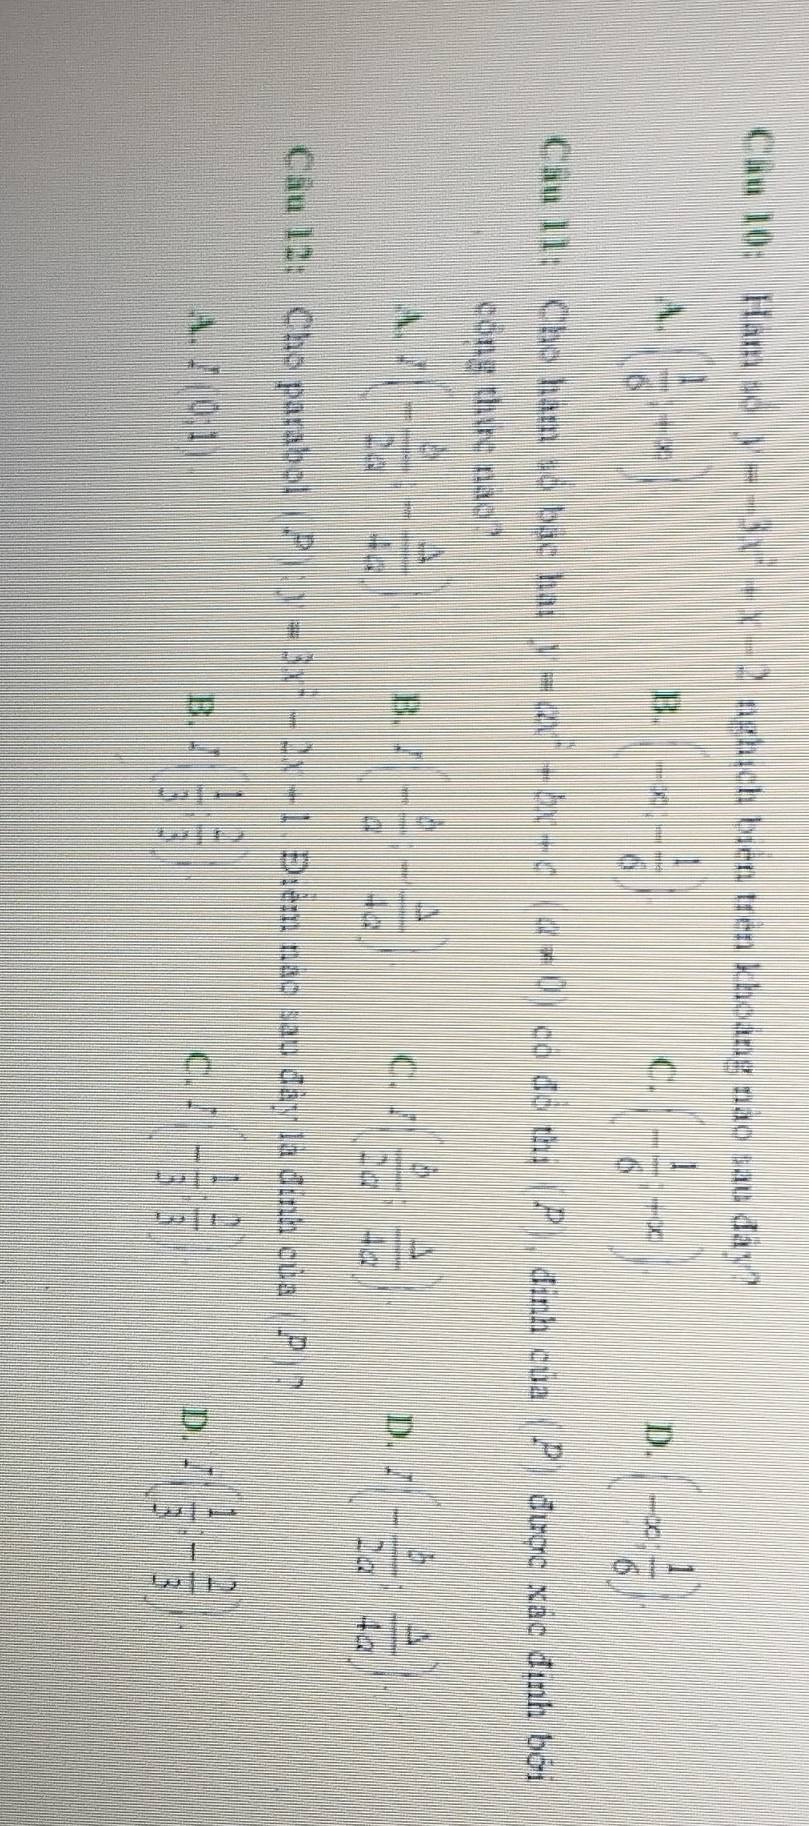 Câu 10: Hàm số y = -3x² + x - 2 nghịch biến trên khoảng nào sau đây?
A. (1/6; +∞). B. (-∞; -1/6). C. (-1/6; +∞). D. (-∞; 1/6).
Câu 11: Cho hàm số bậc hai y = ax² + bx + c (a ≠ 0) có đồ thị (P), đỉnh của (P) được xác định bởi
công thức nào?
A. I(-b/2a; -Δ/4a). B. I(-b/a; -Δ/4a). C. I(b/2a; Δ/4a). D. I(-b/2a; Δ/4a).
Câu 12: Cho parabol (P): y = 3x² - 2x + 1. Điểm nào sau đây là đỉnh của (P)?
A. I(0;1). B. I(1/3; 2/3). C. I(-1/3; 2/3). D. I(1/3; -2/3).